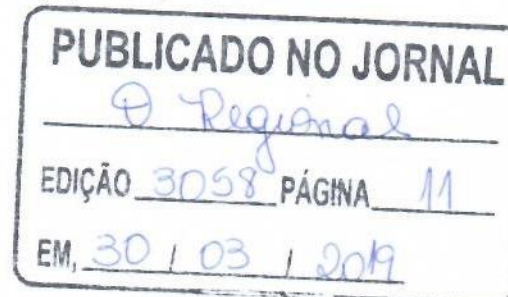 PUBLICADO NO JORNAL
O Regional
EDIÇÃO 3058 PÁGINA 11
EM, 30 / 03 / 2019